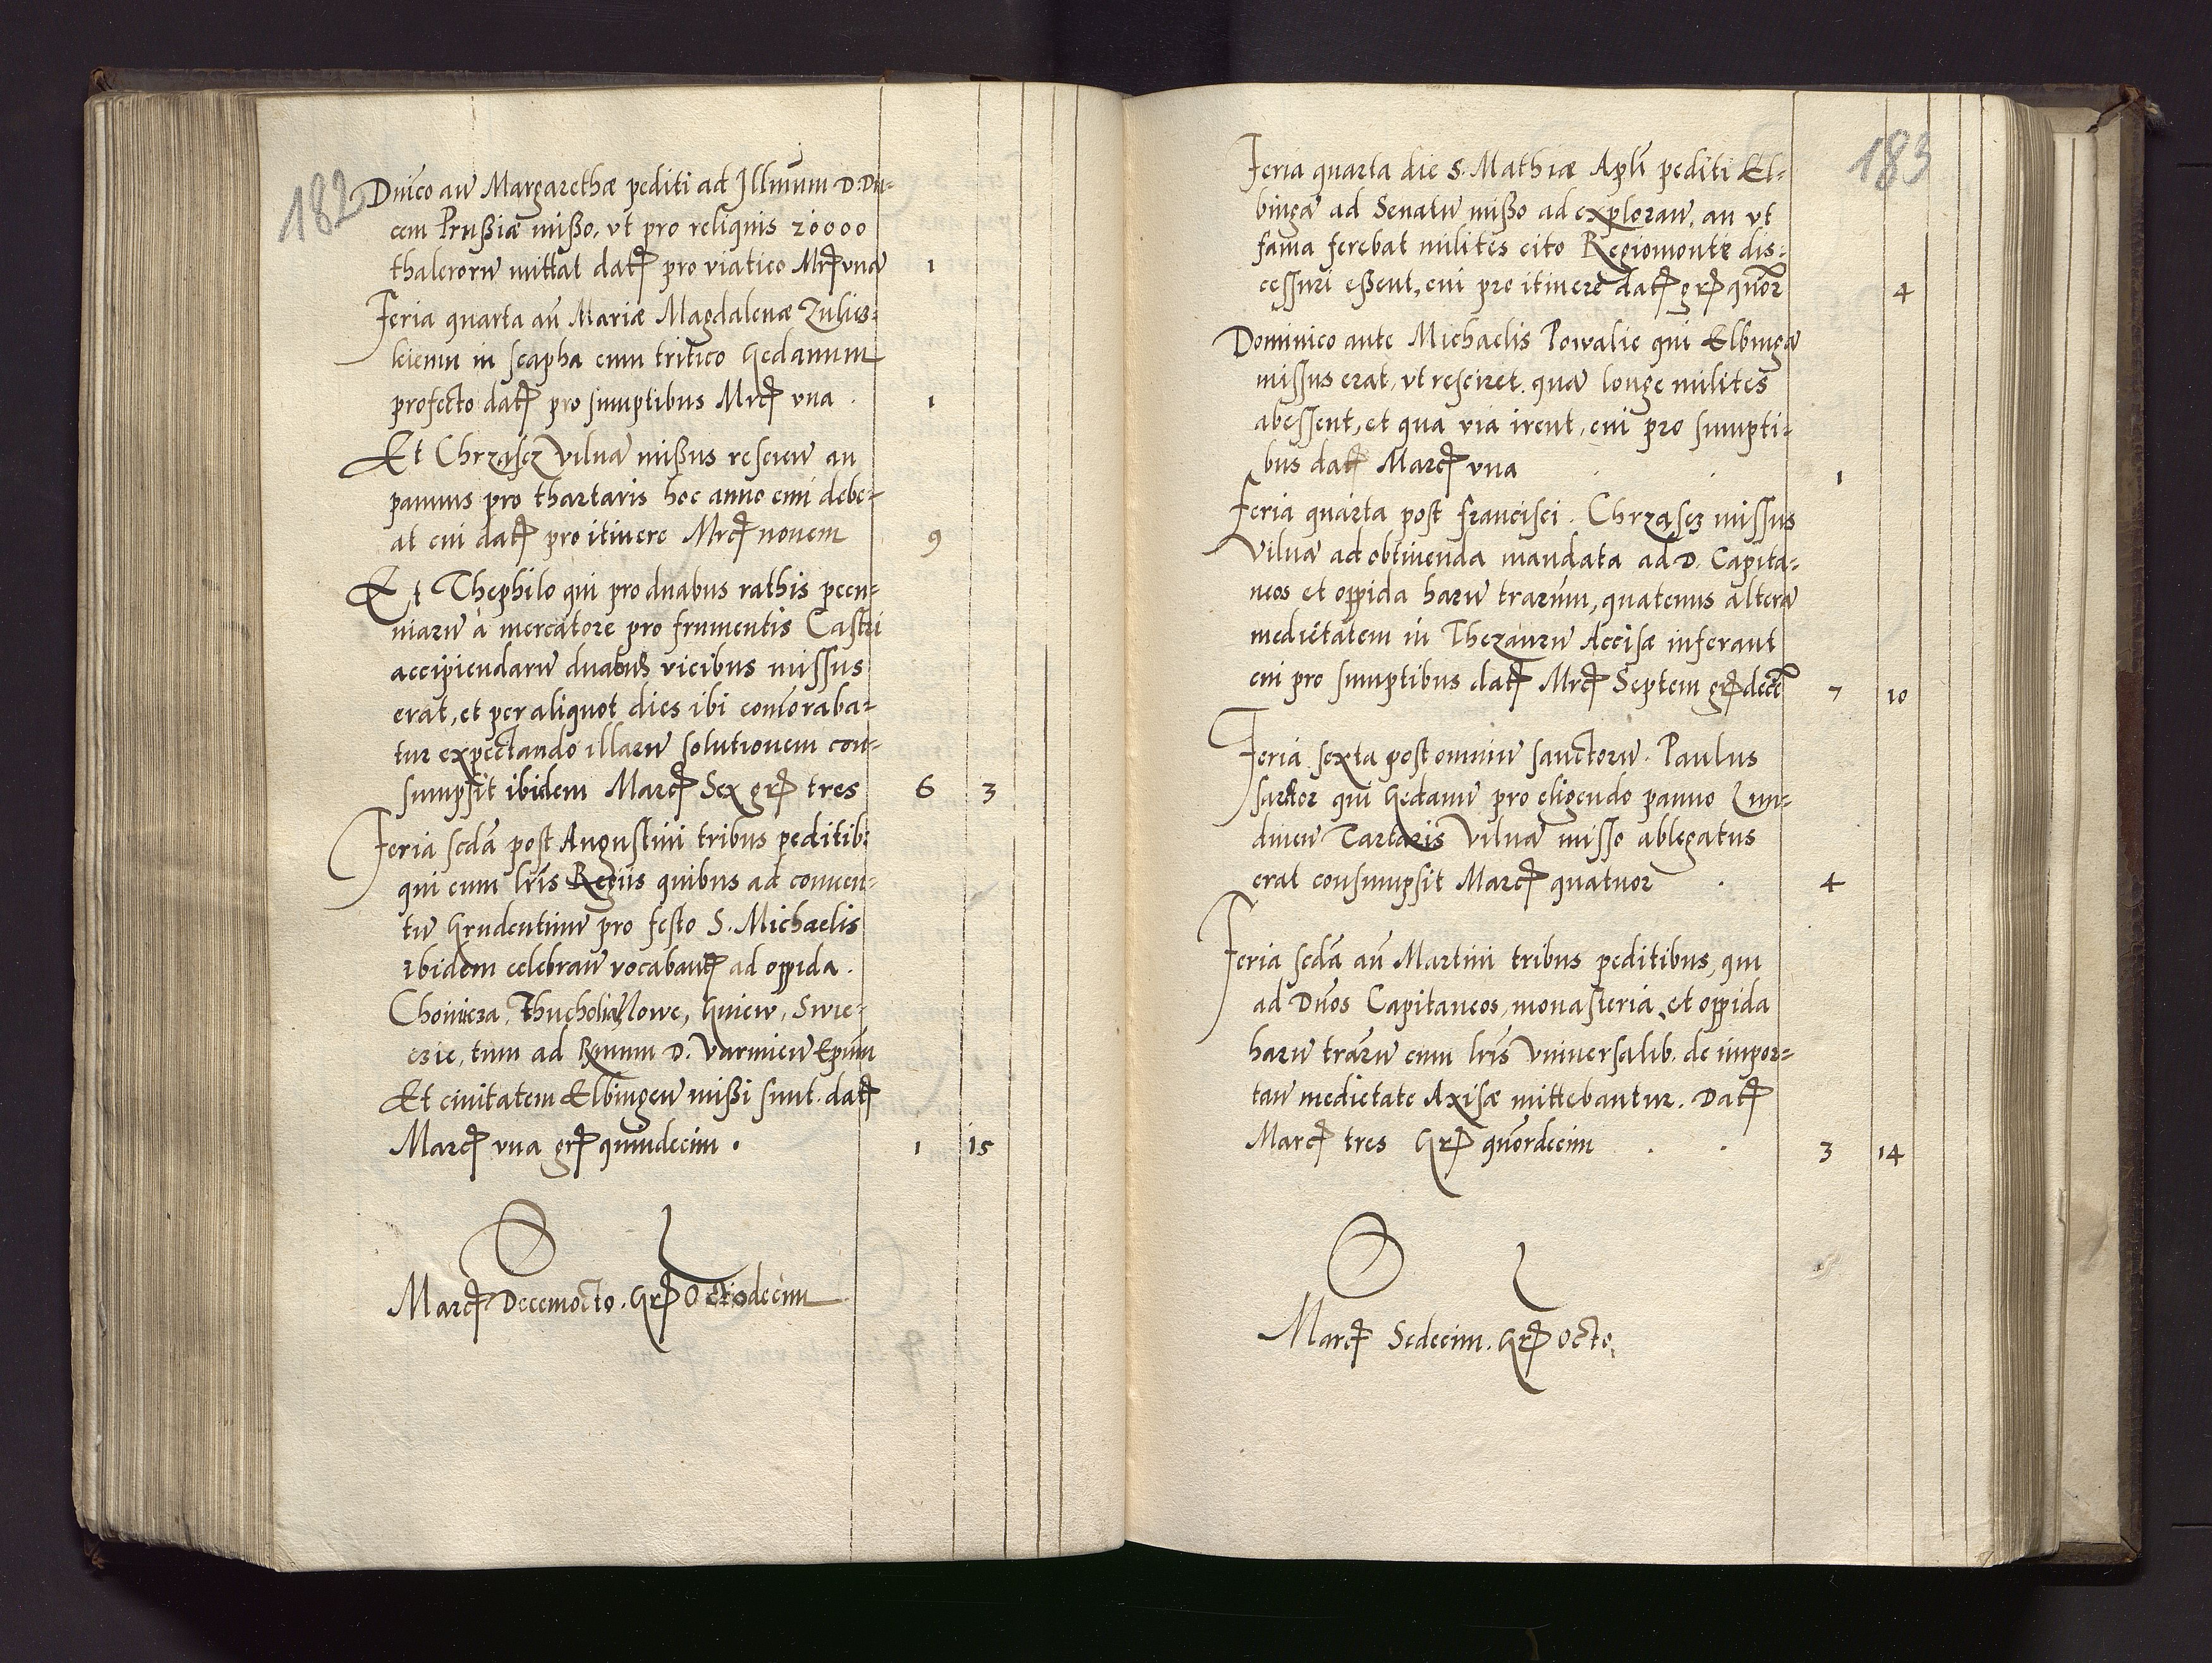 182
Dnico an Margarethæ pediti ad Illmum D. Du- 
cem Prussiæ misso, vt pro reliquis 20000
thalerorũ mittat dat pro viatico Mrc vna 1
Feria quarta añ Mariæ Magdalenæ Zulies-
kiemu in scapha cum tritico Gedanum
profecto dat pro sumptibus Mrc vna . 1
Et Chrząscz Vilnã missus rescitũ an
pannus pro thartaris hoc anno emi debe-
at cui dat pro itinere Mrc novem 9
Et Thephilo qui pro duabus rathis pecu-
niarũ à mercatore pro frumentis Castri
accipiendarũ duabus vicibus missus
erat, et per aliquot dies ibi comoraba-
tur expectando illarũ solutionem con-
sumpsit ibidem Marc Sex gr tres 6 3
Feria scdã post Augustini tribus peditib:
qui cum lris Regiis quibus ad conven-
tũ Grudentinũ pro festo S. Michaelis
ibidem celebran vocabant ad oppida.
Choinicza, Thucholia, Nowe, Gniew, Swie-
czie, tum ad Rmum D. Varmien Epum
Et civitatem Elbingen missi sunt. dat
Marc vna gr quindecim . 1 15
Marc Decemocto. Gr Octodecim
183
Feria quarta die S. Mathiæ Apli pediti El-
bingã ad Senatũ misso ad exploran, an vt
fama ferebat milites cito Regiomonte dis-
cessuri essent, cui pro itinere dat gr quor 4
Dominico ante Michaelis Powalie qui Elbingã
missus erat, vt resciret. quã longe milites
abessent, et qua via irent, cui pro sumpti-
bus dat Marc vna . . 1
Feria quarta post Francisci. Chrząscz missus
Vilnã ad obtinenda mandata ad D. Capita-
neos et oppida harũ trarum, quatenus alterã
medietatem in Thezaurũ Accisæ inferant
cui pro sumptibus dat Mrc Septem gr decẽ 7 10
Feria sexta post omniũ sanctorũ. Paulus
sartor qui Gedanũ pro eligendo panno Zun-
dnien Tartaris Vilnã misso ablegatus
erat consumpsit Marc quatuor . 4
Feria scdã añ Martini tribus peditibus, qui
ad Dnos Capitaneos, monasteria, et oppida
harũ trarũ cum lris Vniversalib. de impor-
tan medietate Axisæ mittebantur. Dat
Marc tres Gr quordecim . . 3 14
Marc Sedecim. Gr Octo.